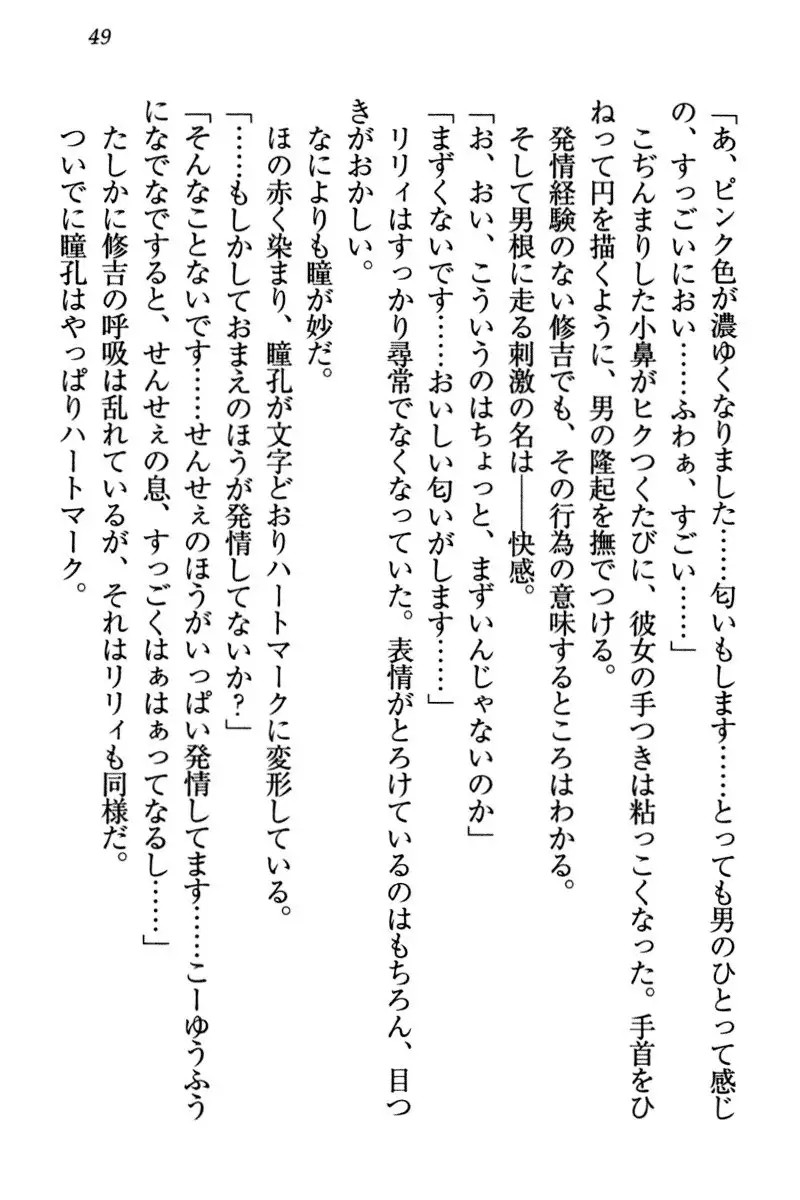 49
「あ、ピンク色が濃ゆくなりました……匂いもします……とっても男のひとって感じ
の、すっごいにおい……ふわぁ、すごい……」
こぢんまりした小鼻がヒクつくたびに、彼女の手つきは粘っこくなった。手首をひ
ねって円を描くように、男の隆起を撫でつける。
発情経験のない修吉でも、その行為の意味するところはわかる。
そして男根に走る刺激の名は――快感。
「お、おい、こういうのはちょっと、まずいんじゃないのか」
「まずくないです……おいしい匂いがします……」
リリィはすっかり尋常でなくなっていた。表情がとろけているのはもちろん、目つ
きがおかしい。
なによりも瞳が妙だ。
ほの赤く染まり、瞳孔が文字どおりハートマークに変形している。
「……もしかしておまえのほうが発情してないか?」
「そんなことないです……せんせぇのほうがいっぱい発情してます……こーゆうふう
になでなですると、せんせぇの息、すっごくはぁはぁってなるし……」
たしかに修吉の呼吸は乱れているが、それはリリィも同様だ。
ついでに瞳孔はやっぱりハートマーク。